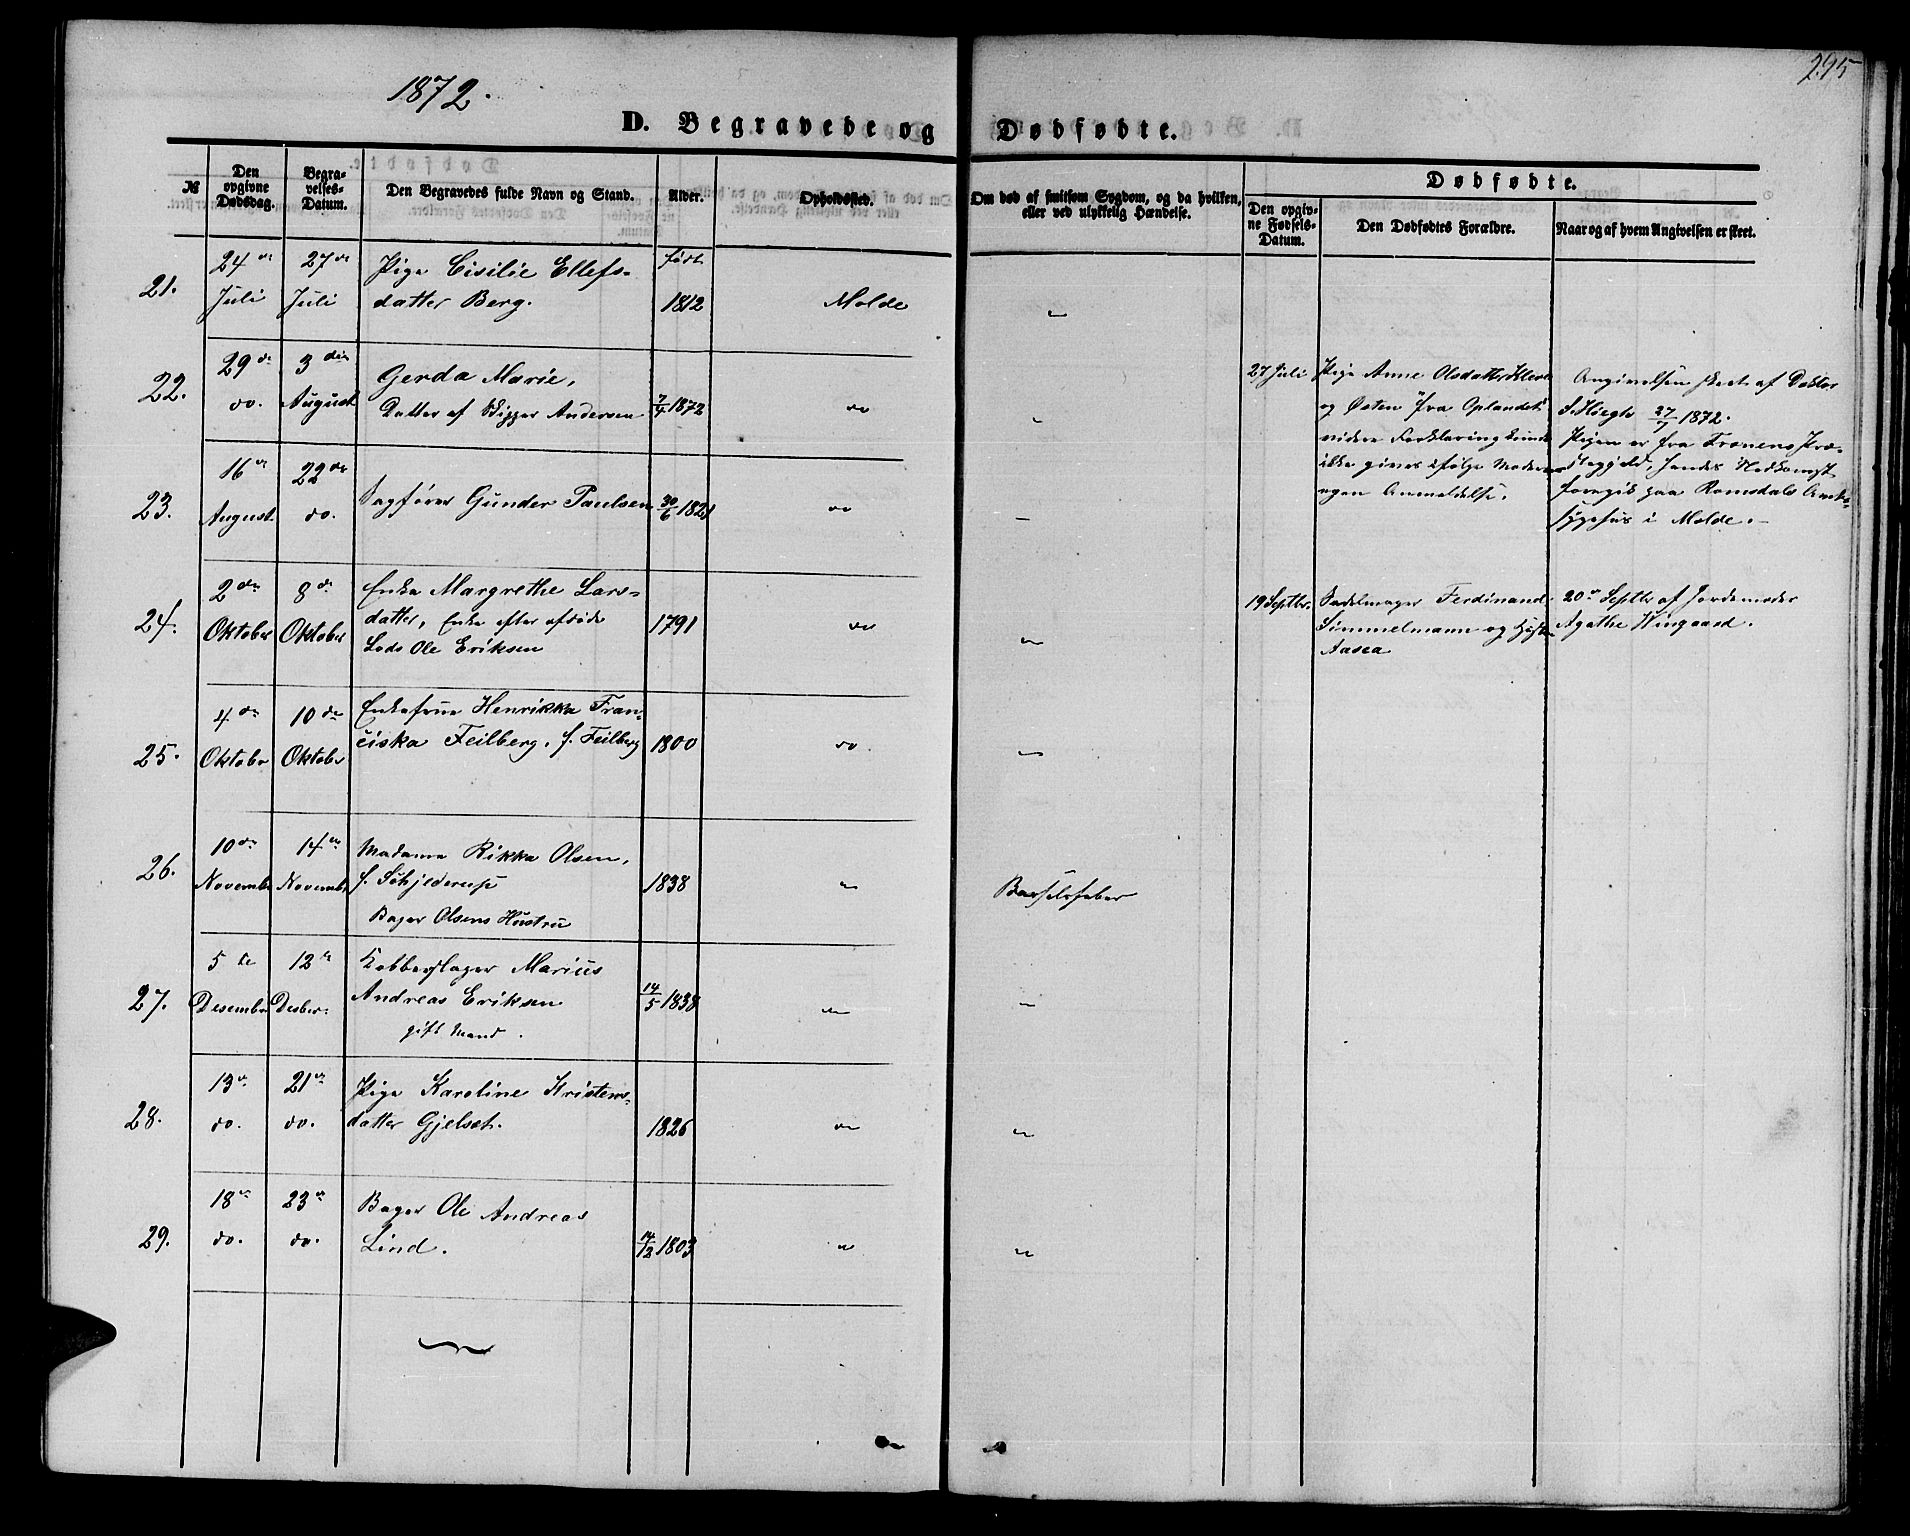 1872.
295
D. Begravede og Dødfødte.
№
Den opgivne Dødsdag.
Begravelses-Datum.
Den Begravedes fulde Navn og Stand.
Alder.
Opholdssted.
Om død af smitsom Sygdom, og da hvilken,
eller ved ulykkelig Hændelse.
Dødfødte.
Den opgivne Fødsels-Datum.
Den Dødfødtes Forældre.
Naar og af hvem Angivelsen er skeet.
21.
24de Juli
27de Juli
Pige Cisilie Ellefs-
datter Berg.
født
1812
Molde
22.
29de do.
3die August
Gerda Marie,
Datter af Andersen
7/4 1872
do
23.
16de August
22de do.
Sagfører Gunder Paulsen
30/6 1821
do
24.
2den Oktober
8de Oktober
Enke Margrethe Lars-
datter, Enke efter afdøde
Lods Ole Eriksen
1791
do
25.
4de Oktober
10de Oktober
Enkefrue Henrikka Fran-
ciska Feilberg, f. Feilberg
1800
do.
26.
10de Novembr
14de Novembr
Madame Rikka Olsen,
f. Schjelderup
Bager Olsens Hustru
1838
Barselsfeber
27.
5te Desember
12te Desber:
Kobberslager Marius
Andreas Eriksen
gift Mand.
14/5 1838
28.
13de do.
21de do.
Pige Karoline Kristens-
datter Gjelset.
1826
29.
18de do.
23de do.
Bager Ole Andreas
Lind.
14/12 1803
27 Juli
Pige Anne Olsdatter
og Østen "fra Oplandet"
videre Forklaring kunde
ikke gives ifølge Moderens
egen Anmeldelse.
Angivelsen skeet af Doktor
27/7 1872.
Pigen er fra Præ-
stegjeld, hendes Nedkomst
foregik paa Romsdals Amts-
sygehus i Molde.-
19 Septbr.
Sadelmager Ferdinand
Simmelmann og Hustru
Aasea
20de Septbr af Jordemoder
Agathe Wingaard.